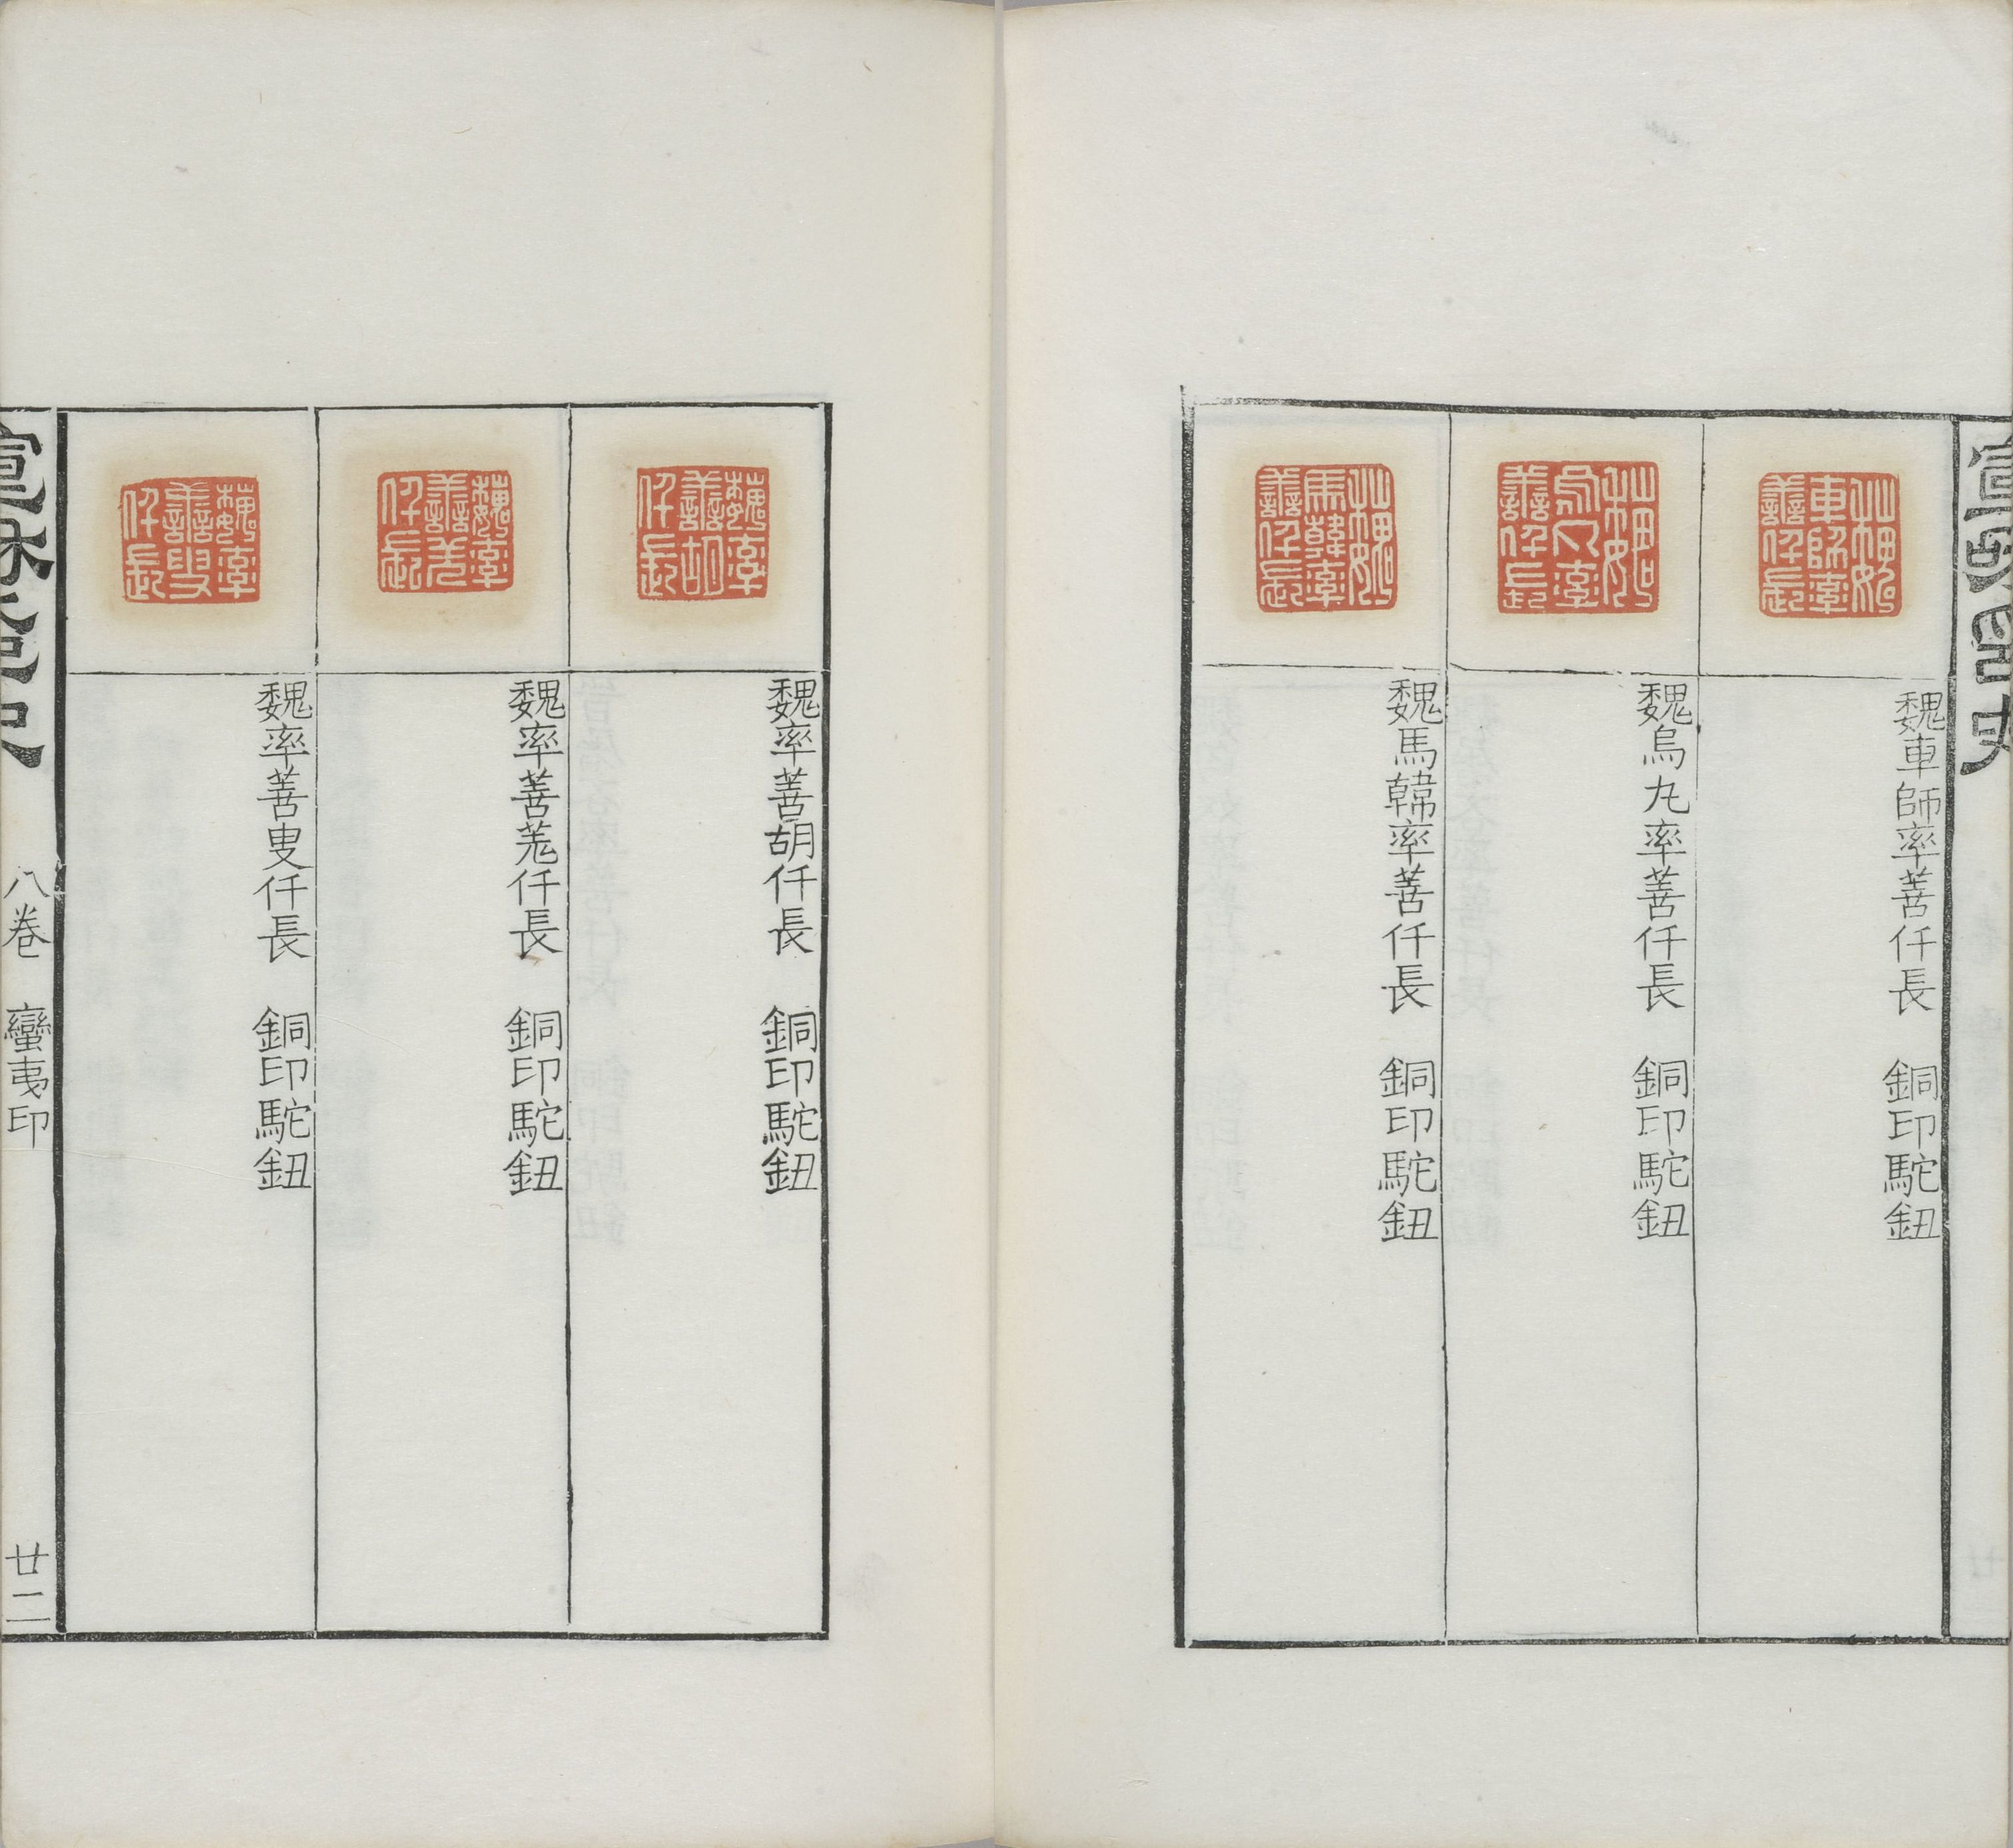 宣和印史
魏車師率善仟長 銅印駝鈕
魏烏丸率善仟長 銅印駝鈕
魏馬韓率善仟長 銅印駝鈕
魏率善胡仟長 銅印駝鈕
魏率善羌仟長 銅印駝鈕
魏率善叟仟長 銅印駝鈕
宣和印史
八卷
蠻夷印
廿二